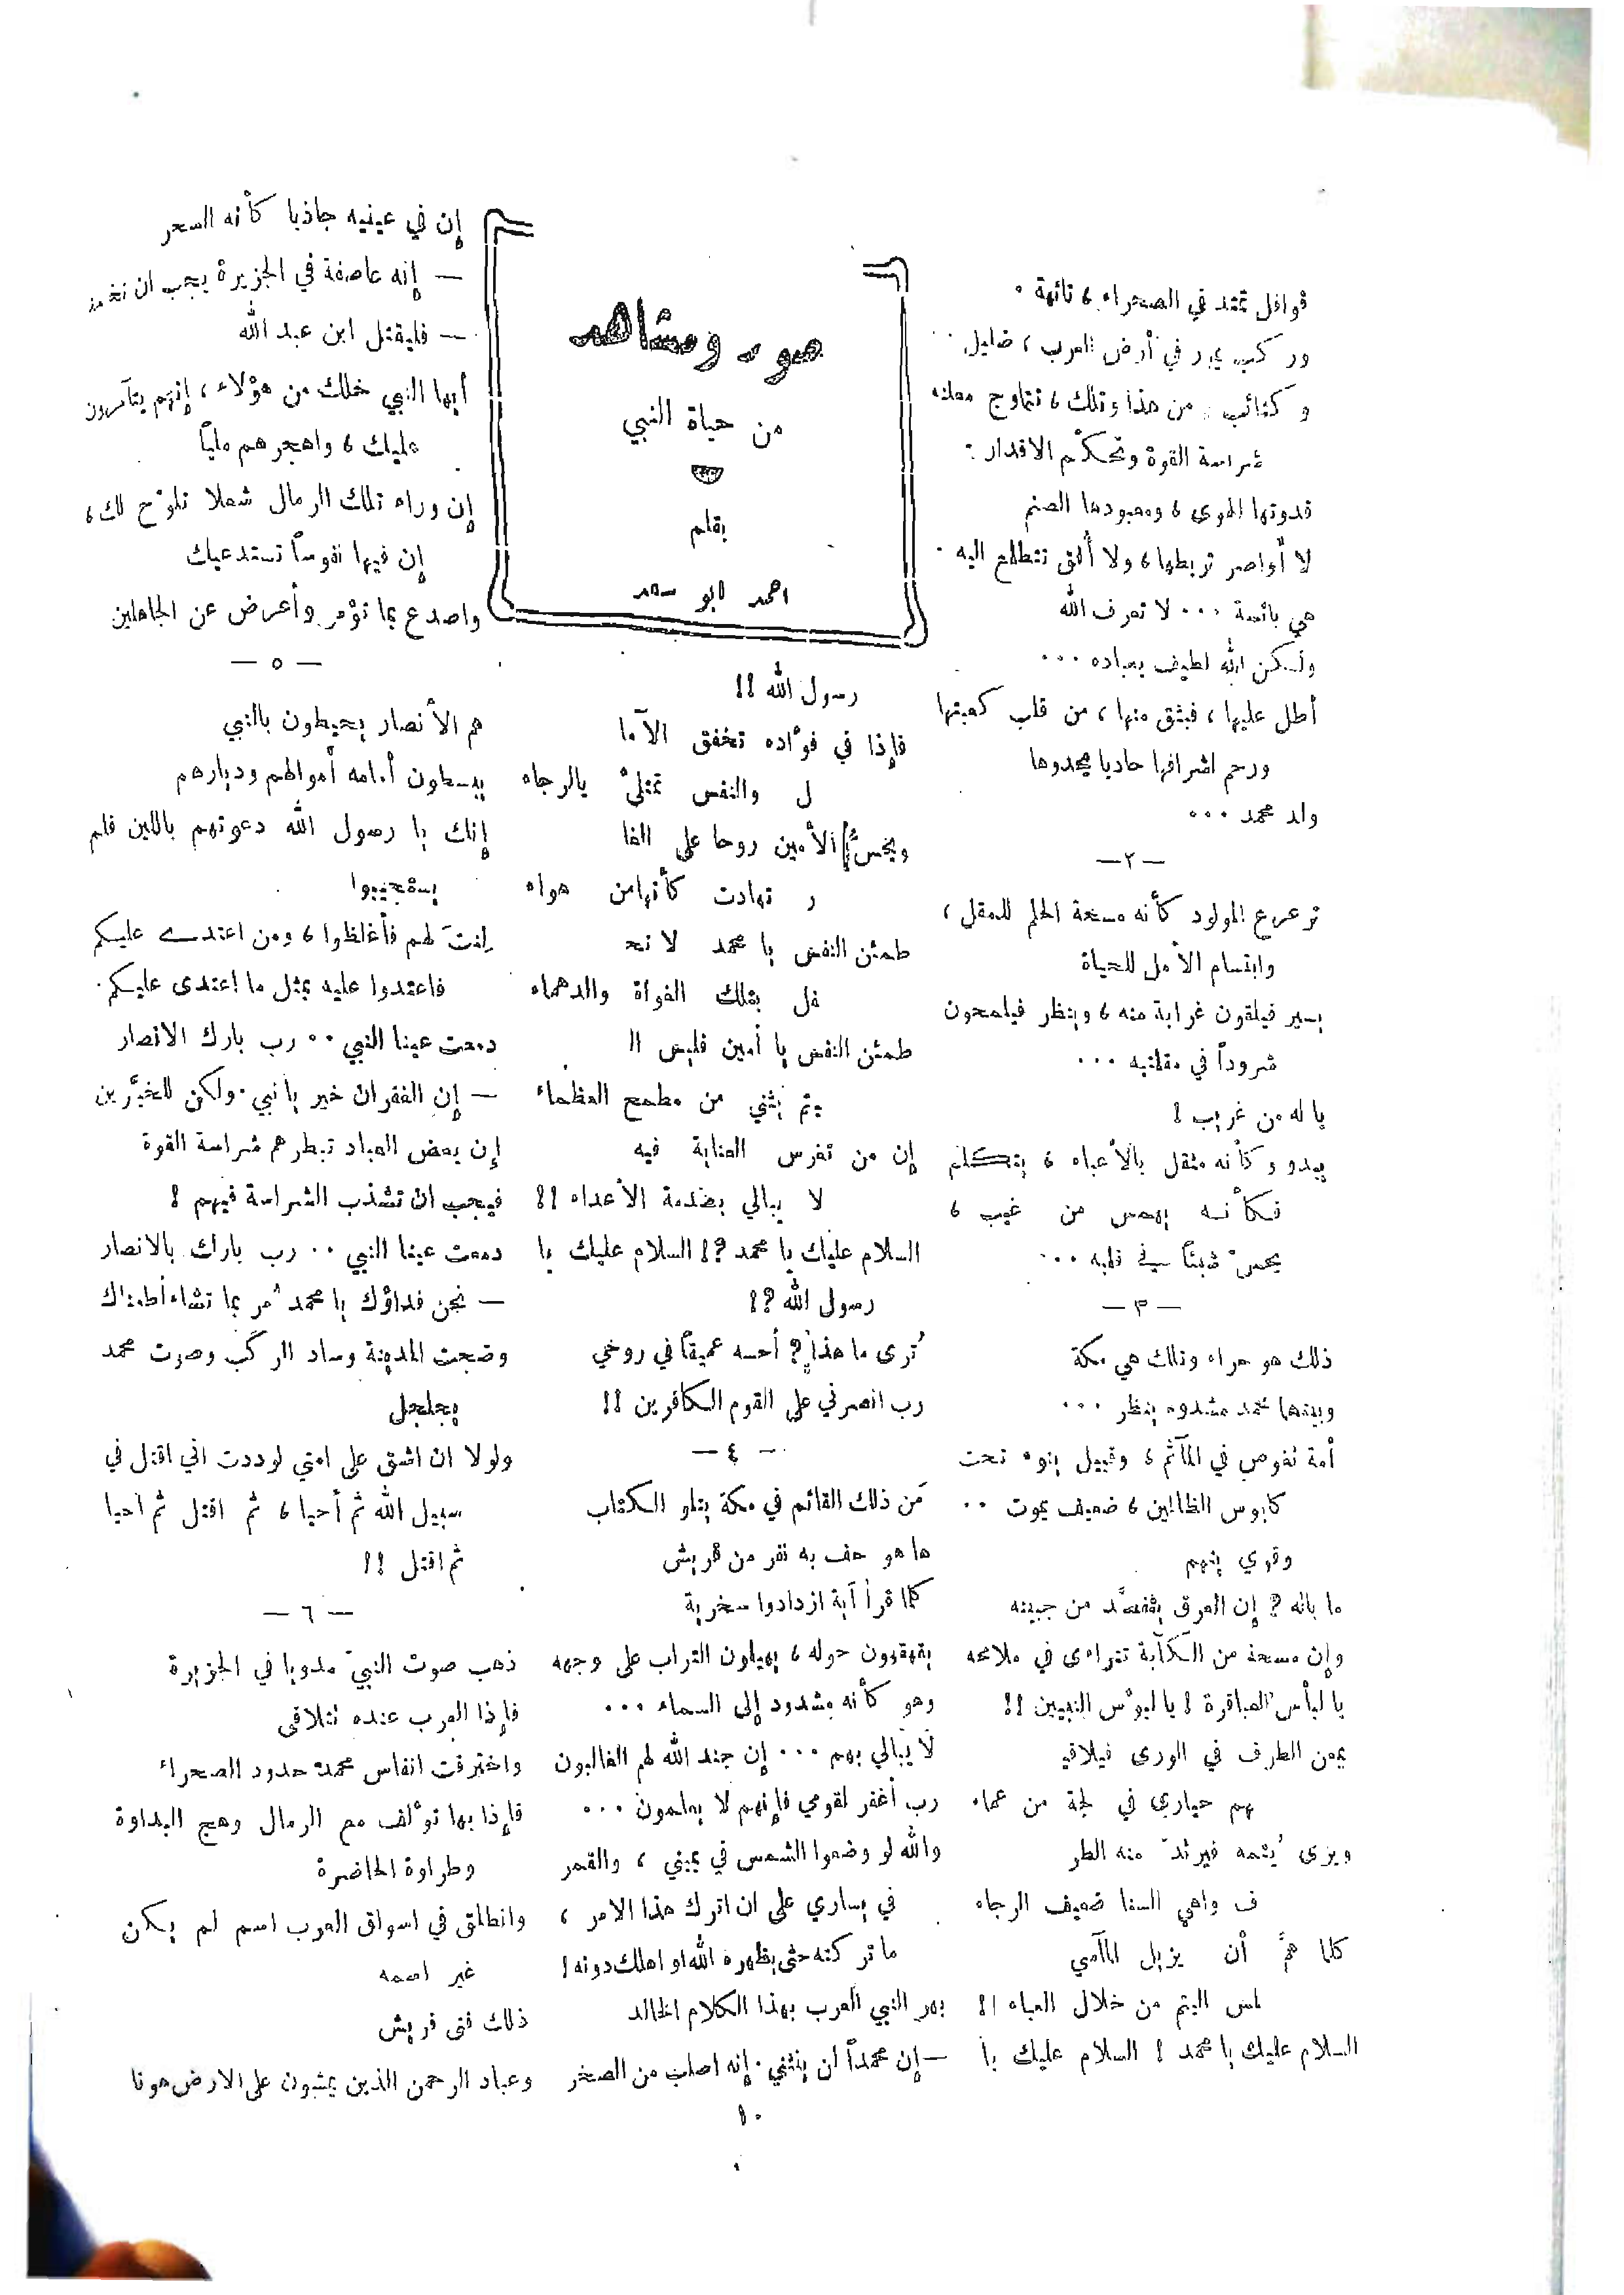 صور ومشاهد
من حياة النبي
بقلم
احمد ابو سعد
قوافل تمتد في الصحراء، تائهة.
وركب يمر في أرض العرب، ضليل.
وكتائب، من هذا وتلك، تتماوج معلنة
شراسة القوة وتحكّم الاقدار:
قدوتها الهوى، ومعبودها الصنم
لا أواصر تربطها، ولا أفق تتطلع اليه.
هي بائسة ... لا تعرف الله
ولكن الله لطيف بعباده ...
أطل عليها، فبثق منها، من قلب كعبتها
ورحم اشرافها حاديا يحدوها
ولد محمد ...
—٢—
ترعرع المولود كأنه مسحة الحلم للمقل،
وابتسام الأمل للحياة
يسير فيلقون غرابة منه، وينظر فيلمحون
شروداً في مقلتيه ...
يا له من غريب!
يبدو وكأنه مثقل بالأعباء، يتكلم
فكأنه يهمس من غيب،
يحسّ شيئاً في قلبه ...
—٣—
ذلك هو حراء وتلك هي مكة
وبينهما محمد مشدوه ينظر ...
أمة تغوص في المآثم، وقبيل ينوء تحت
كابوس الظالمين، ضعيف يموت ..
وقوي يتهم
ما باله؟ إن العرق يتفصَّد من جبينه
وإن مسحة من الكآبة تتراءى في ملامحه
يا لبأس العباقرة! يا لبؤس النبيين!!
يمعن الطرف في الورى فيلاقيـ
ـهم حيارى في لجة من عماء
ويرى يُتمه فيرتدّ منه الطر
ف واهي السنا ضعيف الرجاء
كلما همَّ أن يزيل المآسي
لمس اليتم من خلال العباء!!
السلام عليك يا محمد! السلام عليك يا
رسول الله!!
فإذا في فؤاده تخفق الآما
ل والنفس تمتليْ بالرجاء
ويحسُّ الأمين روحا على الغا
ر تهادت كأنها من هواء
طمئن النفس يا محمد لا تحـ
فل بتلك الغواة والدهماء
طمئن النفس يا أمين فليس الـ
يتم يثني من مطمح العظماء
إن من تغرس العناية فيه
لا يبالي بضدمة الأعداء!!
السلام عليك يا محمد؟! السلام عليك يا
رسول الله؟!
تُرى ما هذا؟ أحسه عميقاً في روحي
رب انصرني على القوم الكافرين!!
—٤—
مَن ذلك القائم في مكة يتلو الكتاب
ها هو حف به نفر من قريش
كلما قرأ آية ازدادوا سخرية
يقهقهون حوله، يهيلون التراب على وجهه
وهو كأنه مشدود إلى السماء ...
لا يبالي بهم ... إن جند الله لهم الغالبون
رب أغفر لقومي فإنهم لا يعلمون ...
والله لو وضعوا الشمس في يميني، والقمر
في يساري على ان اترك هذا الامر،
ما تركته حتى يظهره الله او اهلك دونه!
بهر النبي العرب بهذا الكلام الخالد
— إن محمداً لن ينثني. إنه اصلب من الصخر
إن في عينيه جاذبا كأنه السحر
— إنه عاصفة في الجزيرة يجب ان نخمد
— فليقتل ابن عبد الله
أيها النبي خلك من هؤلاء، إنهم يتآمرون
عليك، واهجرهم مليًا
إن وراء تلك الرمال شعلا تلوّح لك،
إن فيها نفوساً تستدعيك
واصدع بما تؤمر وأعرض عن الجاهلين
—٥—
هم الأنصار يحيطون بالنبي
يبسطون أمامه أموالهم وديارهم
إنك يا رسول الله دعوتهم باللين فلم
يستجيبوا
لِنتَ لهم فأغلظوا، ومن اعتدى عليكم
فاعتدوا عليه بمثل ما اعتدى عليكم.
دمعت عينا النبي .. رب بارك الانصار
— إن الغفران خير يا نبي. ولكن للخيّرين
إن بعض العباد تبطرهم شراسة القوة
فيجب ان تشذب الشراسة فيهم!
دمعت عينا النبي .. رب بارك بالانصار
— نحن فداؤك يا محمد مُر بما تشاء أطعناك
وضجت المدينة وساد الركب وصوت محمد
يجلجل
ولولا ان اشق على امتي لوددت اني اقتل في
سبيل الله ثم أحيا، ثم اقتل ثم احيا
ثم اقتل!!
—٦—
ذهب صوت النبيّ مدويا في الجزيرة
فإذا العرب عنده تتلاقى
واخترقت انفاس محمد حدود الصحراء
فإذا بها تؤلف مع الرمال وهج البداوة
وطراوة الحاضرة
وانطلق في اسواق العرب اسم لم يكن
غير اسمه
ذلك فتى قريش
وعباد الرحمن الذين يمشون على الارض هونا
١٠